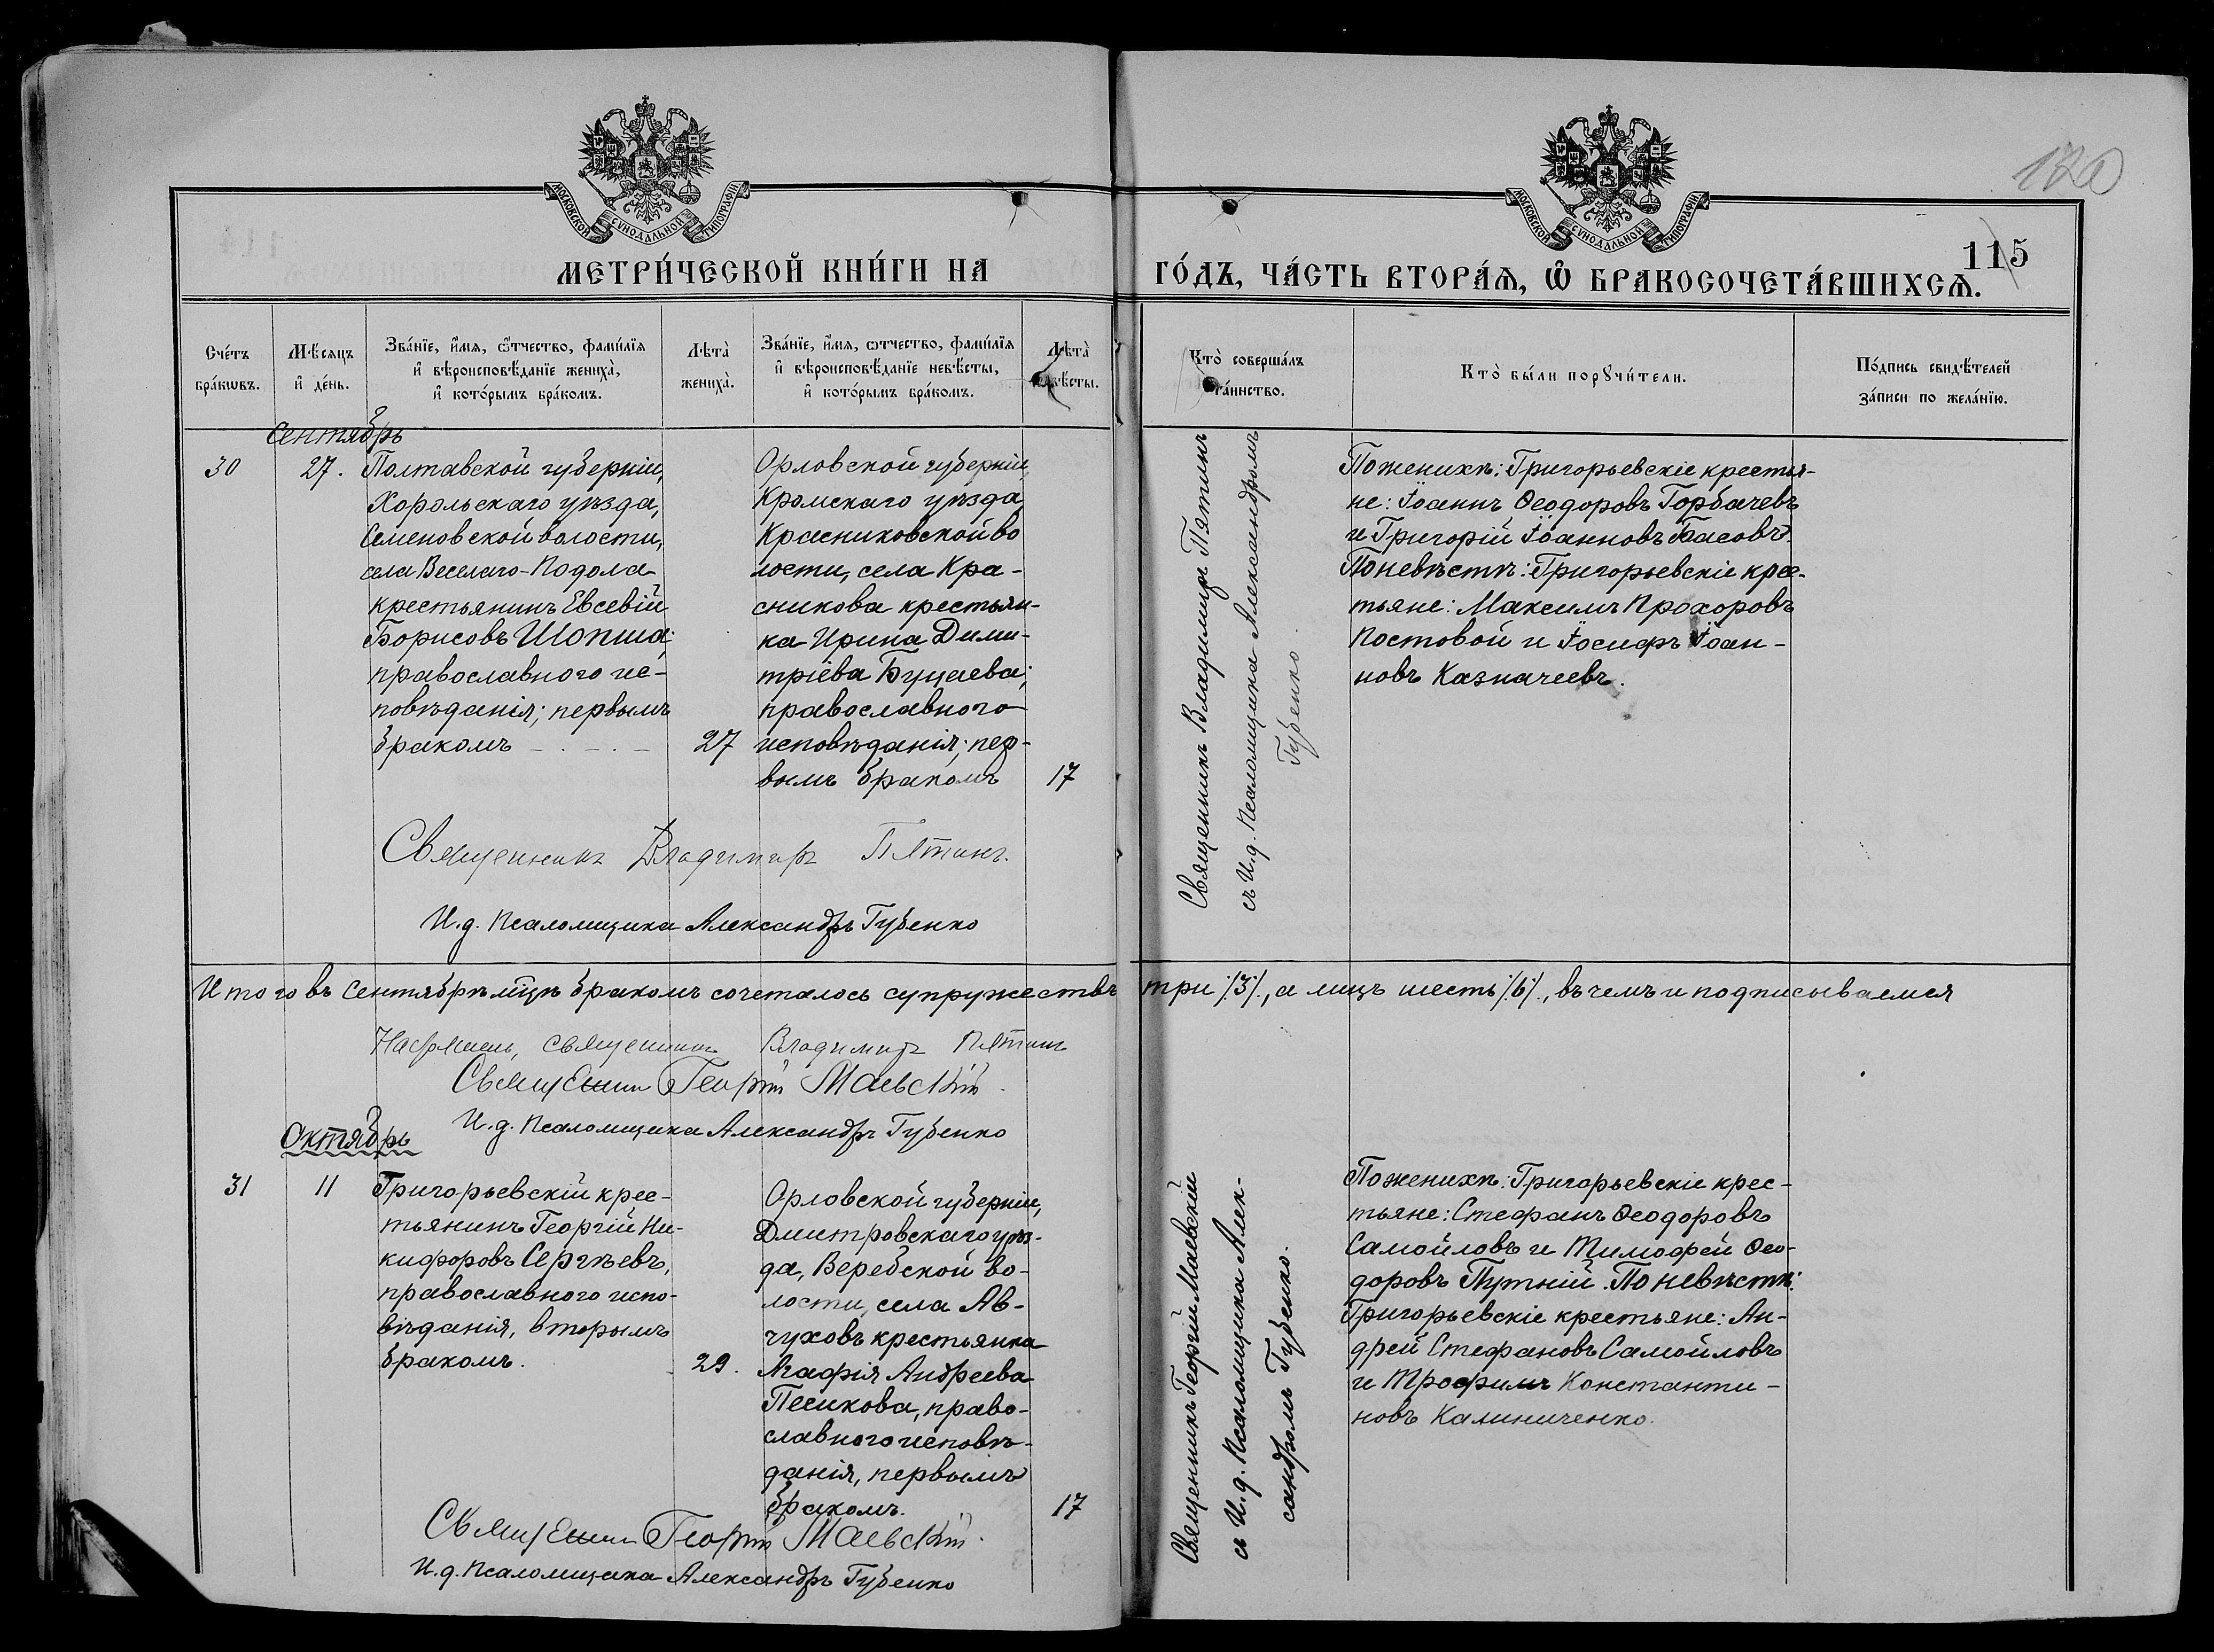 120
МОСКОВСКОЙ СѴНОДАЛЬНОЙ ТИПОГРАФІИ
МОСКОВСКОЙ СѴНОДАЛЬНОЙ ТИПОГРАФІИ
115
МЕТРИ́ЧЕСКОЙ КНИ́ГИ НА ГО́ДЪ, ЧА́СТЬ ВТОРА́Ѧ, Ѽ БРАКОСОЧЕТА́ВШИХСѦ.
Сче́тъ
бра́кѡвъ.
Мѣ́сяцъ
и҆ де́нь.
Зва́нїе, и҆́мя, ѻ҆́тчество, фами́лїя
и҆ вѣроисповѣ́данїе жениха̀,
и҆ кото́рымъ бра́комъ.
Лѣта̀
жениха̀.
Зва́нїе, и҆́мя, ѻ҆тчество, фами́лїя
и҆ вѣроисповѣ́данїе невѣ́сты,
и҆ кото́рымъ бра́комъ.
Лѣта̀
невѣ́сты.
Кто̀ соверша́лъ
та́инство.
Кто̀ бы́ли порꙋчи́тели.
По́дпись свидѣ́телей
за́писи по жела́нїю.
Сентябрь
30
27.
Полтавской губерніи,
Хорольскаго уѣзда,
Семеновской волости,
села Веселаго-Подола
крестьянинъ Евсевій
Борисовъ Шопша;
православного ис-
повѣданія; первымъ
бракомъ
27
Орловской губерніи,
Кромскаго уѣзда,
Красниковской во
лости, села Кра-
сникова крестьян-
ка Ирина Дими-
тріева Буцаева;
православного
исповѣданія; пер-
вымъ бракомъ
17
Священникъ Владимиръ Пятинъ
съ И.д. Псаломщика Александромъ
Губенко.
По женихѣ: Григорьевскіе крестья-
не: Іоаннъ Ѳеодоровъ Горбачевъ
и Григорій Іоанновъ Басовъ.
По невѣстѣ: Григорьевскіе крес-
тьяне: Максимъ Прохоровъ
Постовой и Іосифъ Іоан-
новъ Казначеевъ.
Священникъ Владимиръ Пятинъ.
И.д. Псаломщика Александръ Губенко
Итого въ Сентябрѣ мцѣ бракомъ сочеталось супружествъ три /3/, а лицъ шесть /6/, въ чемъ и подписываемся
Настоятель, священникъ Владимиръ Пятинъ
Священникъ Георгій Маевскій.
И.д. Псаломщика Александръ Губенко
Октябрь
31
11
Григорьевскій крес-
тьянинъ Георгій Ни-
кифоровъ Сергѣевъ,
православного испо-
вѣданія, вторымъ
бракомъ.
29.
Орловской губерніи,
Дмитровскаго уѣз-
да, Веребской во-
лости, села Ав-
чуховъ крестьянка
Агафія Андреева
Песикова, право-
славного исповѣ-
данія, первымъ
бракомъ.
17
Священникъ Георгій Маевскій
съ И.д. Псаломщика Алек-
сандромъ Губенко.
По женихѣ: Григорьевскіе крес-
тьяне: Стефанъ Ѳеодоровъ
Самойловъ и Тимофей Ѳео-
доровъ Путній. По невѣстѣ:
Григорьевскіе крестьяне: Ан-
дрей Стефановъ Самойловъ
и Трофимъ Константи-
новъ Калиниченко.
Священникъ Георгій Маевскій.
И.д. Псаломщика Александръ Губенко